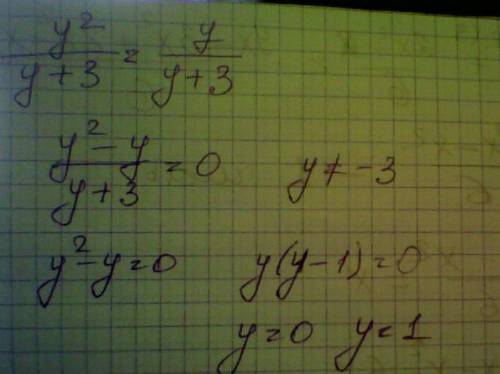 y²/(y+3) = y/(y+3)
(y²-y)/(y+3) = 0    y ≠ -3
y²-y=0    y(y-1)=0
y=0  y=1